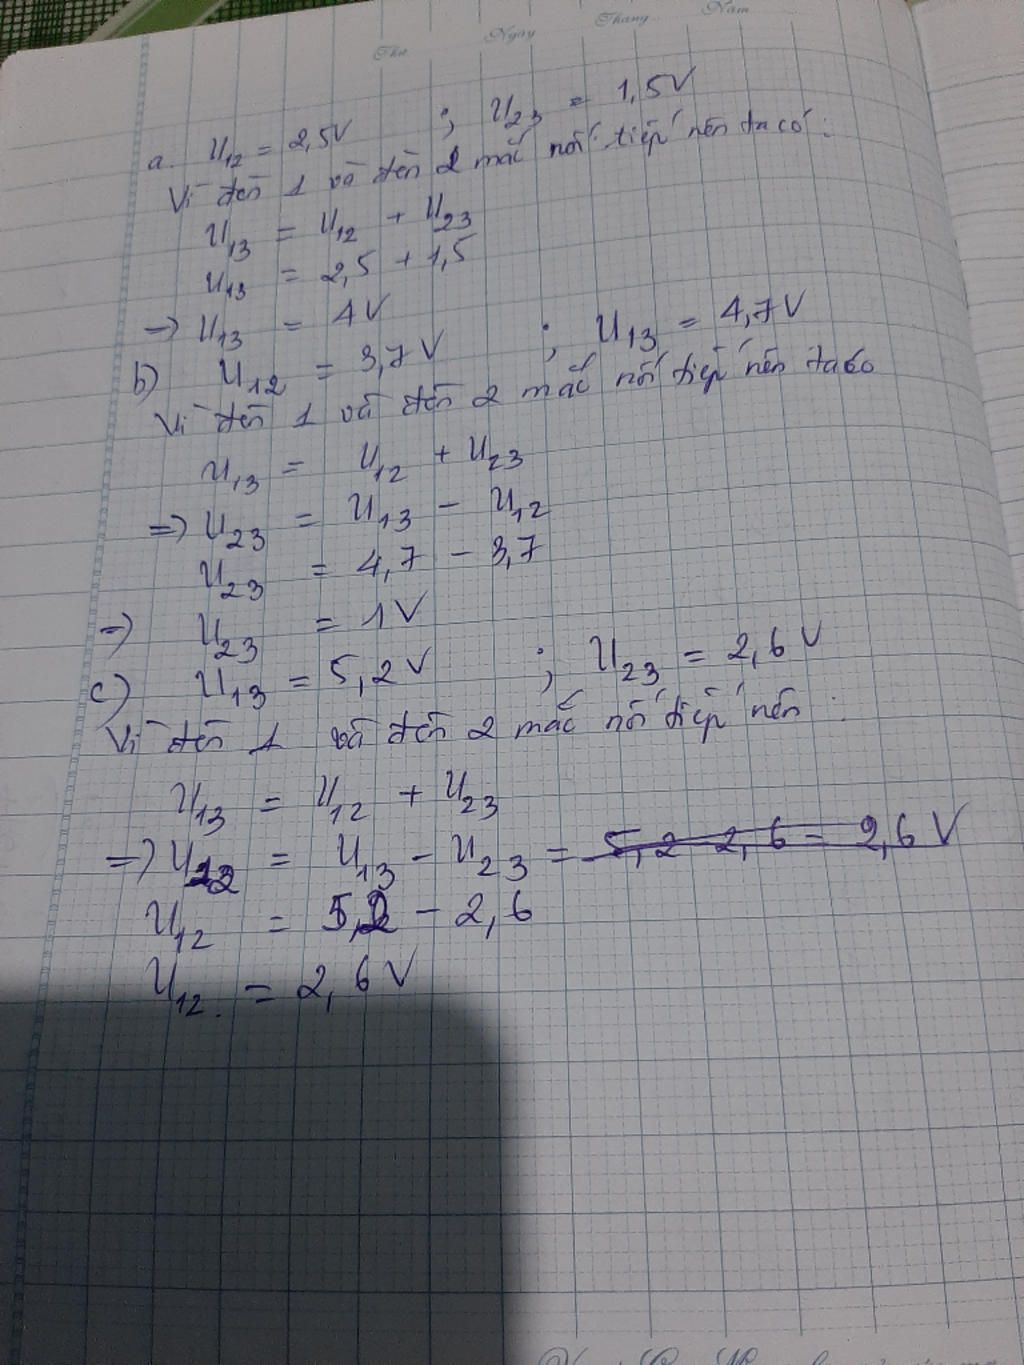 Thứ Ngày Tháng Năm
a. U12 = 2,5V ; U23 = 1,5V
Vì đèn 1 và đèn 2 mắc nối tiếp nên ta có :
U13 = U12 + U23
U13 = 2,5 + 1,5
=> U13 = 4V
b) U12 = 3,7V ; U13 = 4,7V
Vì đèn 1 và đèn 2 mắc nối tiếp nên ta có
U13 = U12 + U23
=> U23 = U13 - U12
U23 = 4,7 - 3,7
=> U23 = 1V
c) U13 = 5,2V ; U23 = 2,6V
Vì đèn 1 và đèn 2 mắc nối tiếp nên :
U13 = U12 + U23
=> U12 = U13 - U23 = 5,2 - 2,6 = 2,6V
U12 = 5,2 - 2,6
U12 = 2,6V